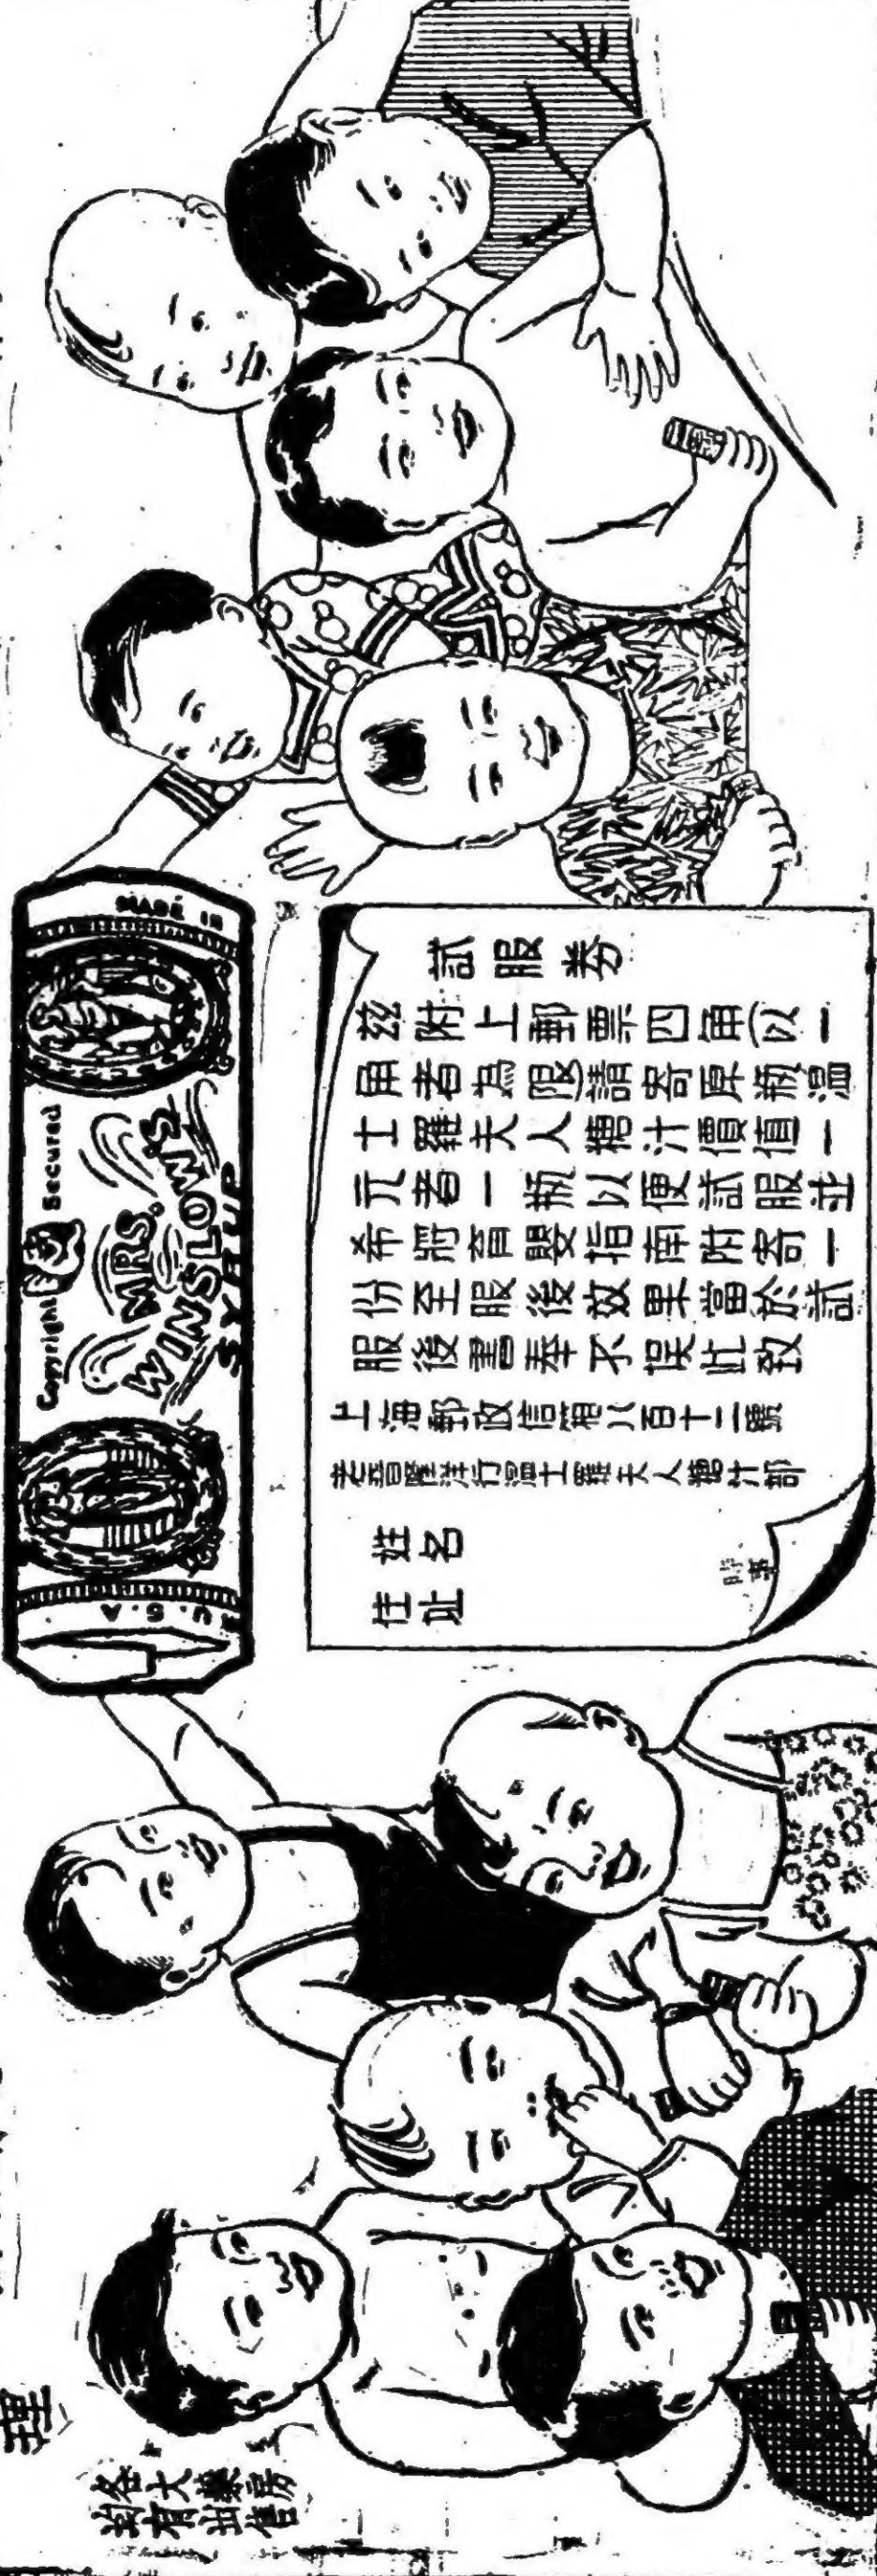 MADE IN
U.S.A
Copyright Secured
MRS.
WINSLOW'S
SYRUP
試服券
茲附上郵票四角(以一
角者為限)請寄原瓶溫
士羅夫人糖汁價值一
元者一瓶以便試服並
希將育嬰指南附寄一
份至服後效果當於試
服後書奉不誤此致
上海郵政信箱八百十二號
老晉隆洋行溫士羅夫人糖汁部
姓名
住址
時事
理
各大藥房
均有出售